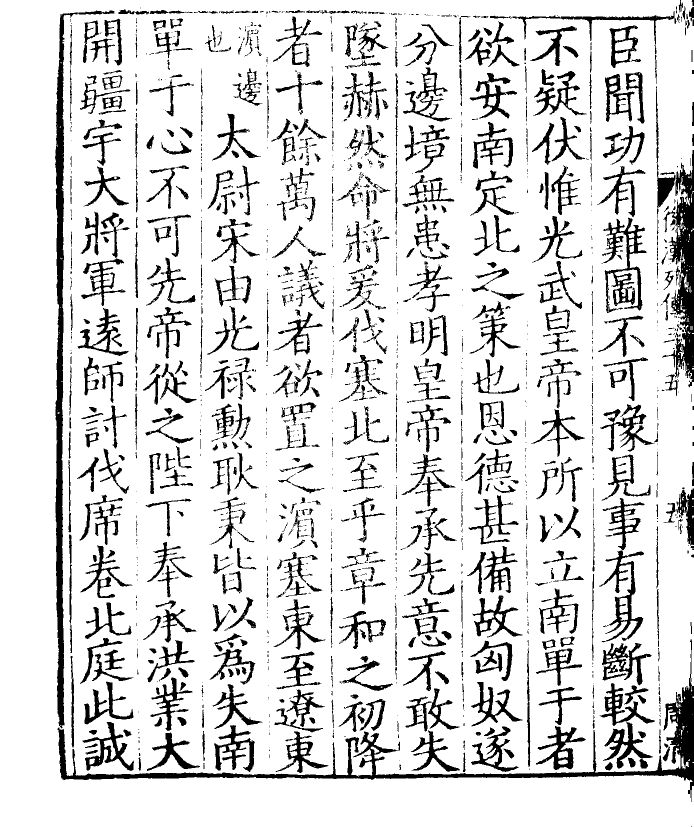 臣聞功有難圖不可豫見事有易斷較然
不疑伏惟光武皇帝本所以立南單于者
欲安南定北之策也恩德甚備故匈奴遂
分邊境無患孝明皇帝奉承先意不敢失
墜赫然命將爰伐塞北至乎章和之初降
者十餘萬人議者欲置之濵塞東至遼東
濵邊
也
太尉宋由光禄勲耿秉皆以爲失南
單于心不可先帝從之陛下奉承洪業大
開疆宇大將軍逺師討伐席卷北庭此誠